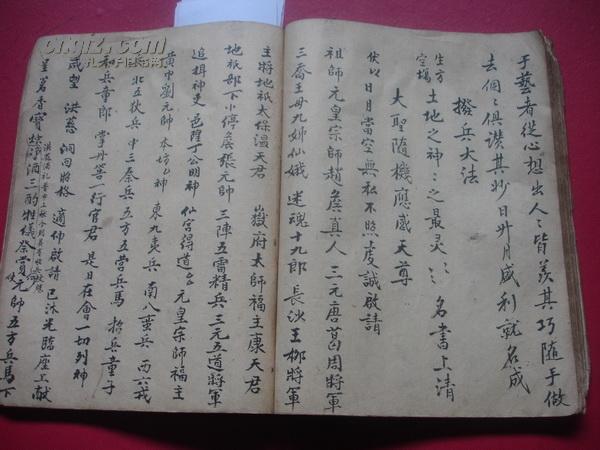 于藝者從心想出人〻皆羨其巧隨手做
去個〻俱讚其妙日升月盛利就名成
撥兵大法
生方
空塲
土地之神〻之最灵〻〻名書上清
大聖隨機應感天尊
伏以日月當空無私不照虔誠啟請
祖師元皇宗師趙矦真人三元唐葛周將軍
三喬王母九㛐仙娥迷魂十九郎長沙王栁將軍
主將地祇太保溫天君嶽府太師福主康天君
地祇部下小停矦張元帥三陣五雷精兵三元五道將軍
追楫神吏邑隍丁公明神仙宮得道〻元皇宗師福主
黃中劉元帥本坊〻神東九夷兵南八蛮兵西六戎
兵北五狄兵中三秦兵五方五营兵馬招兵童子
和兵童郎掌丹筞一行官君是日在會一切列神
咸望洪慈洞囬將格適伸啟請已沐光臨座上献
呈茗香寳燭淨酒三酌牲儀祭賞元帥五方兵馬下